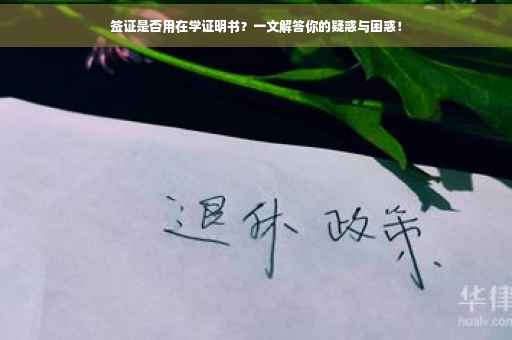 签证是否用在学证明书？一文解答你的疑惑与困惑！
退休 政策
华律
hualv.com